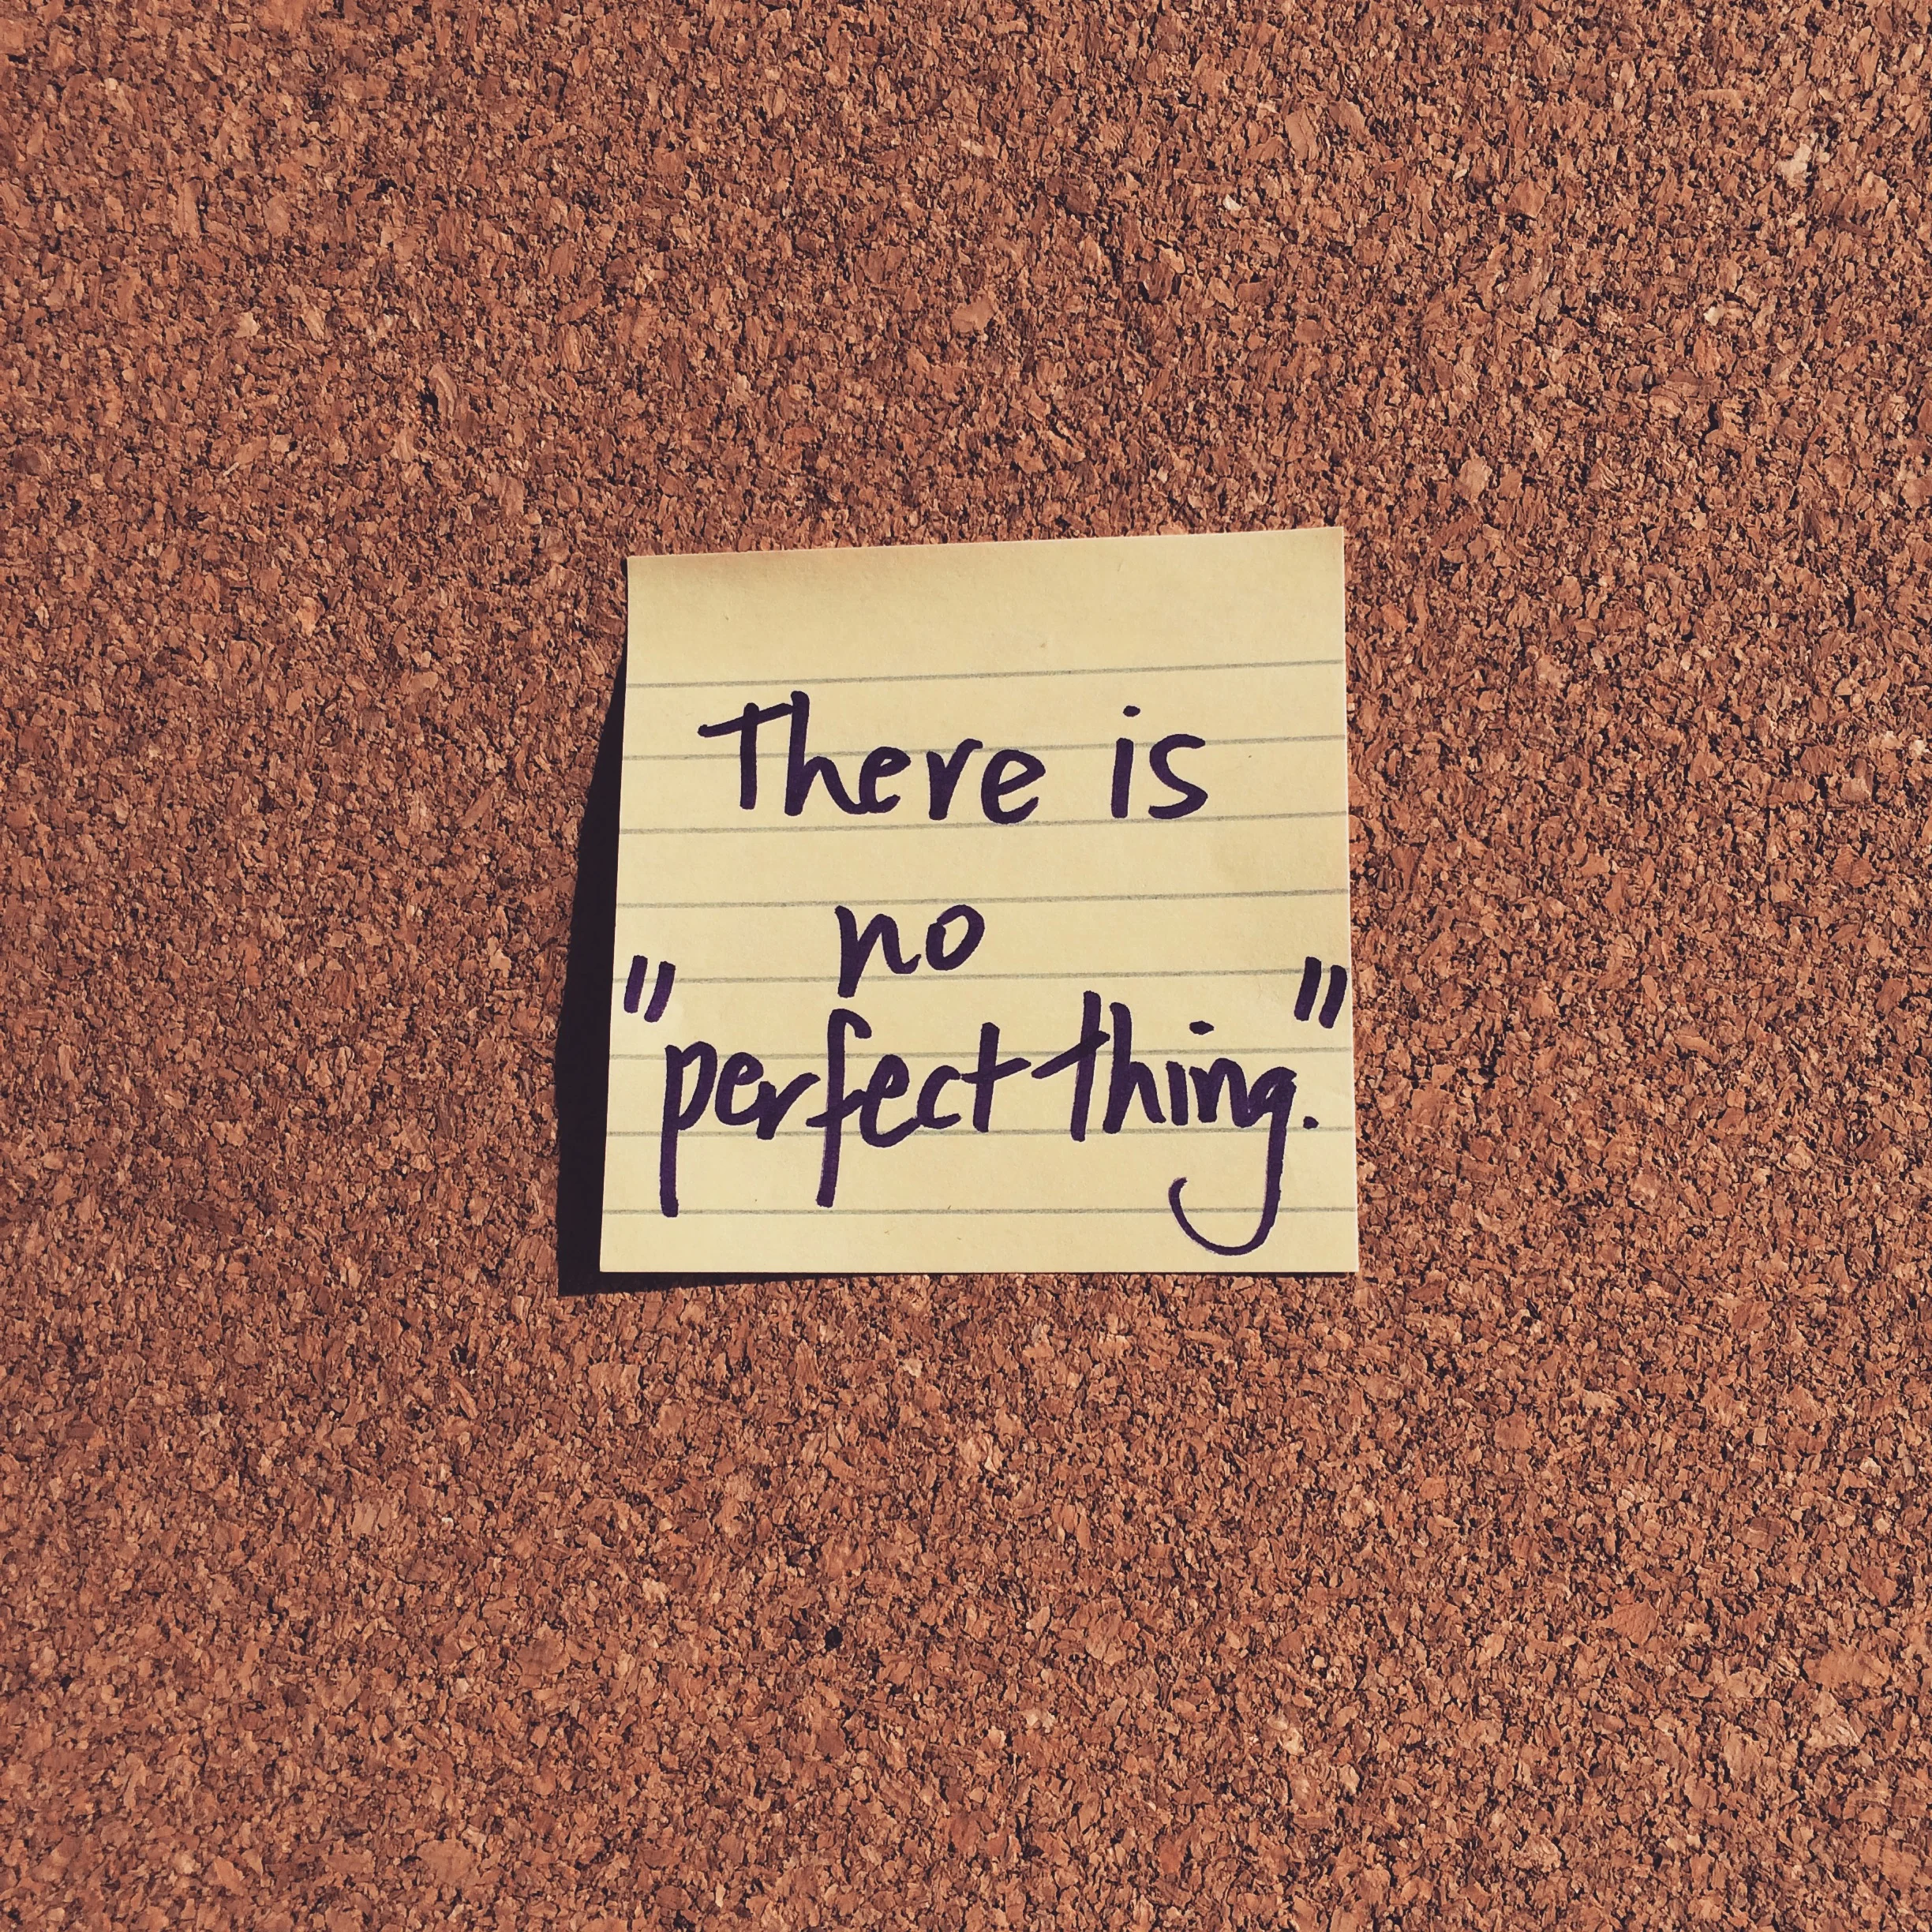 There is
no
"perfect thing."